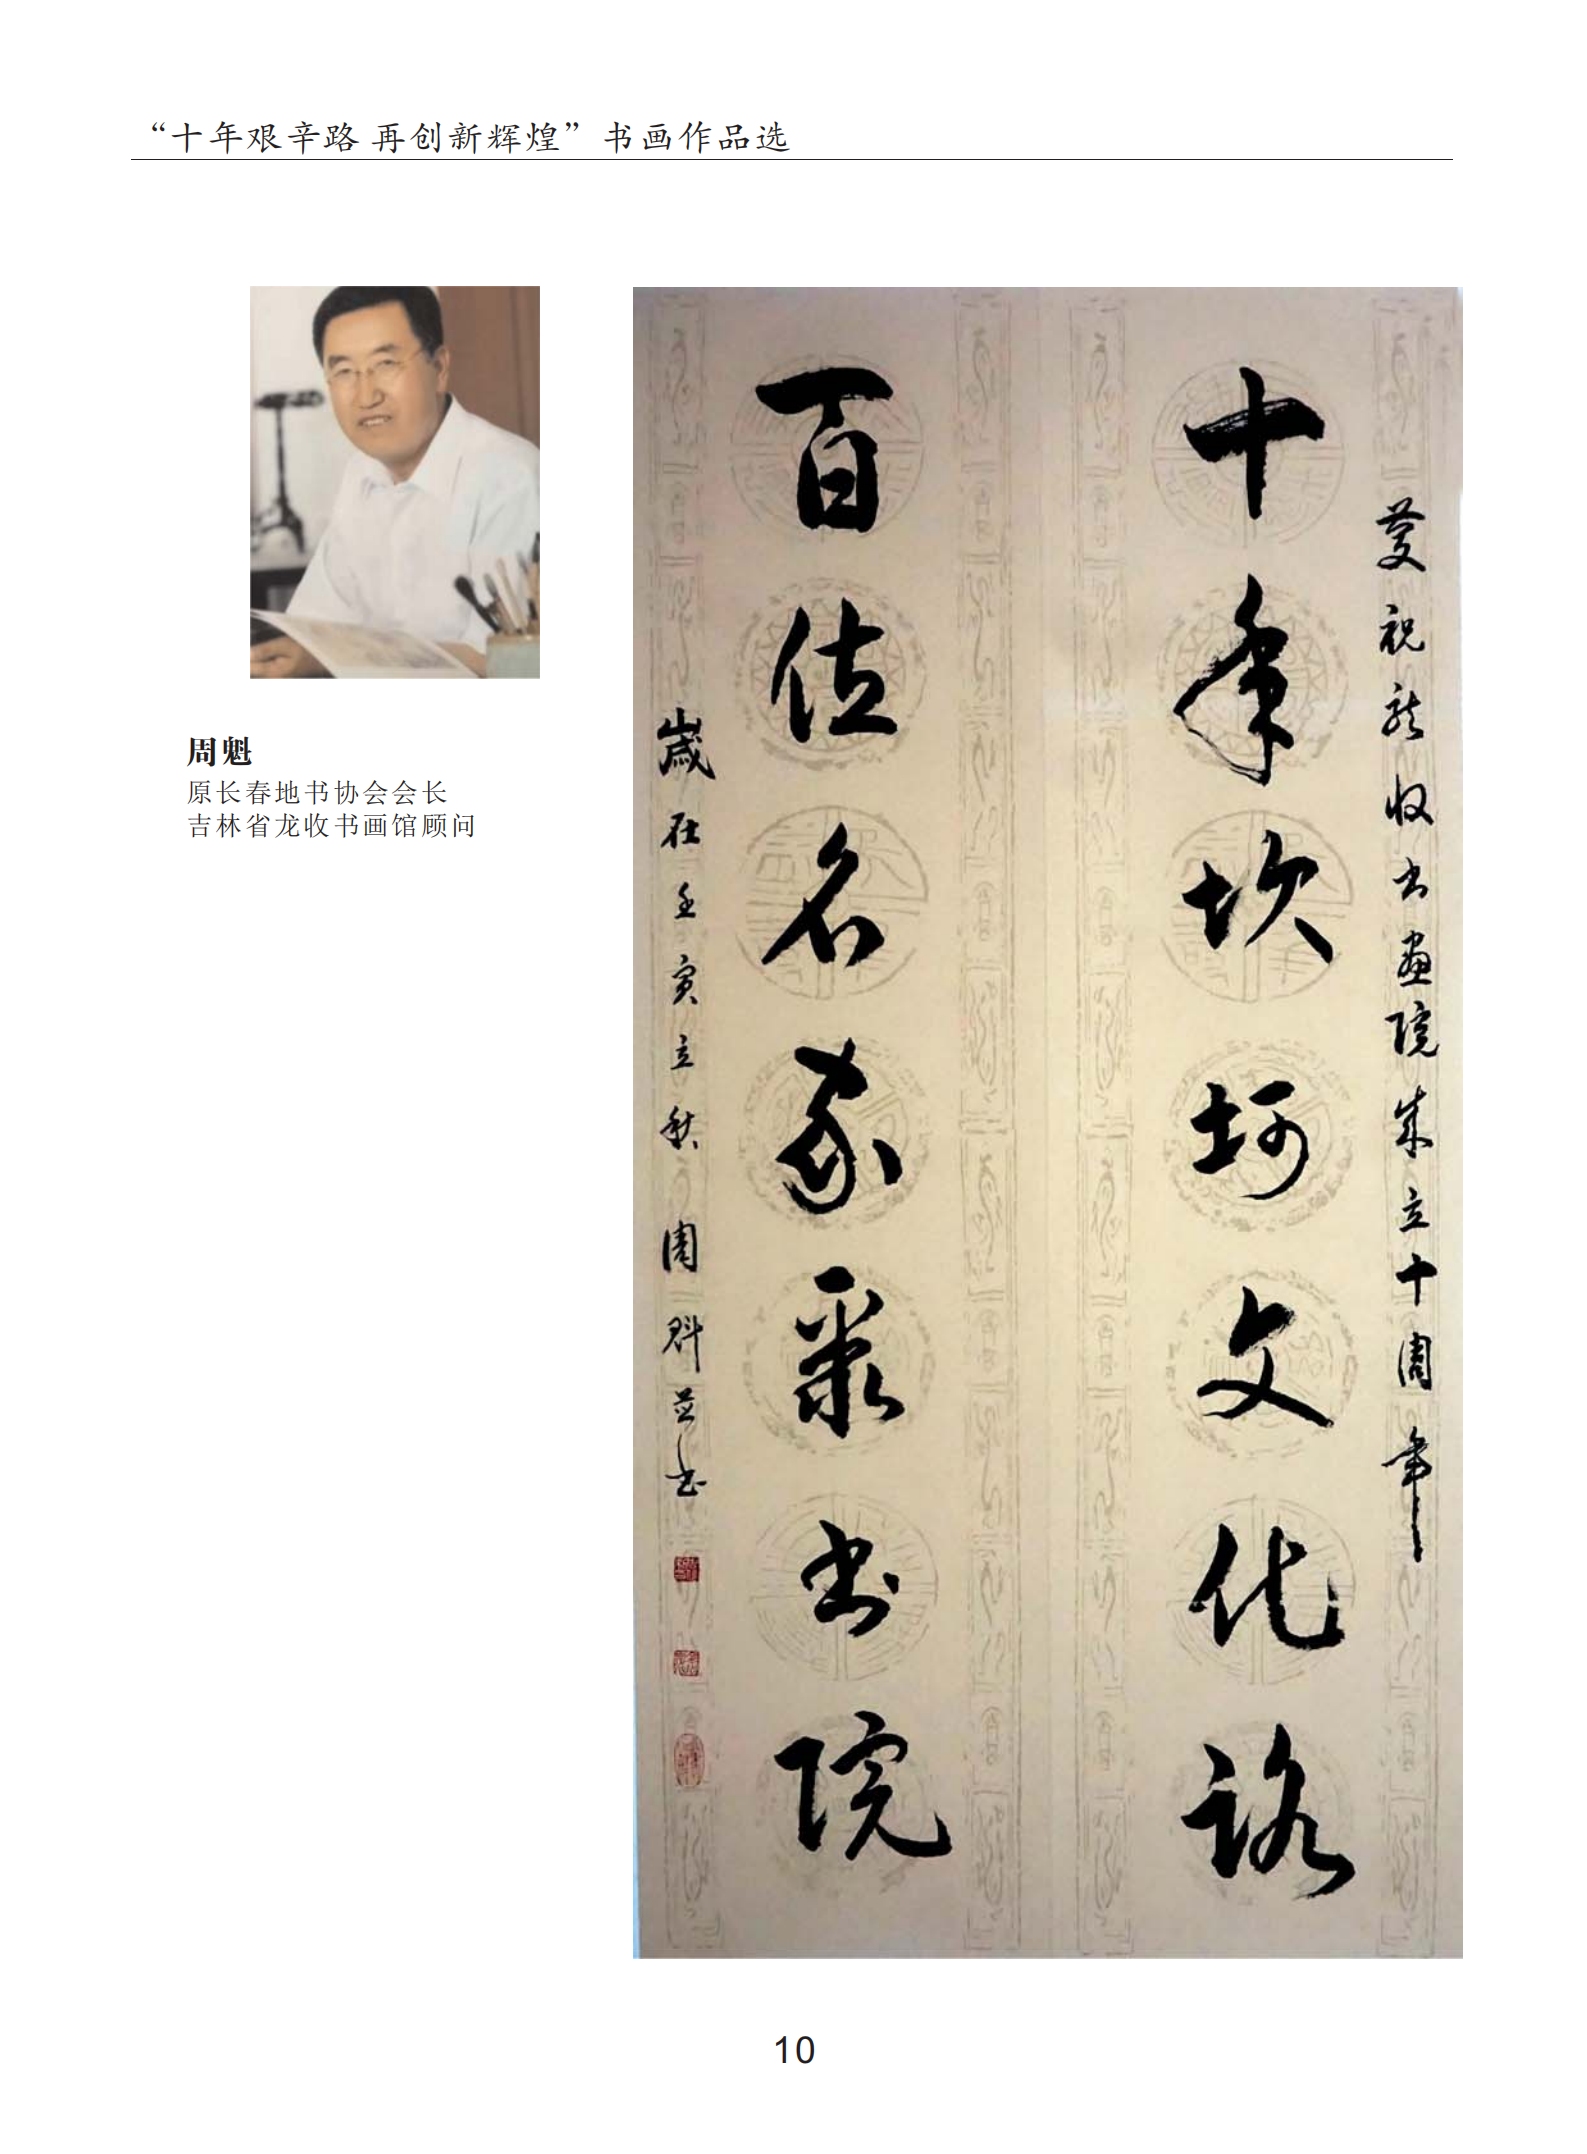 “十年艰辛路 再创新辉煌”书画作品选
周魁
原长春地书协会会长
吉林省龙收书画馆顾问
慶祝龙收书畫院成立十周年
十年坎坷文化路
百位名家聚书院
歲在壬寅立秋 周魁並书
10